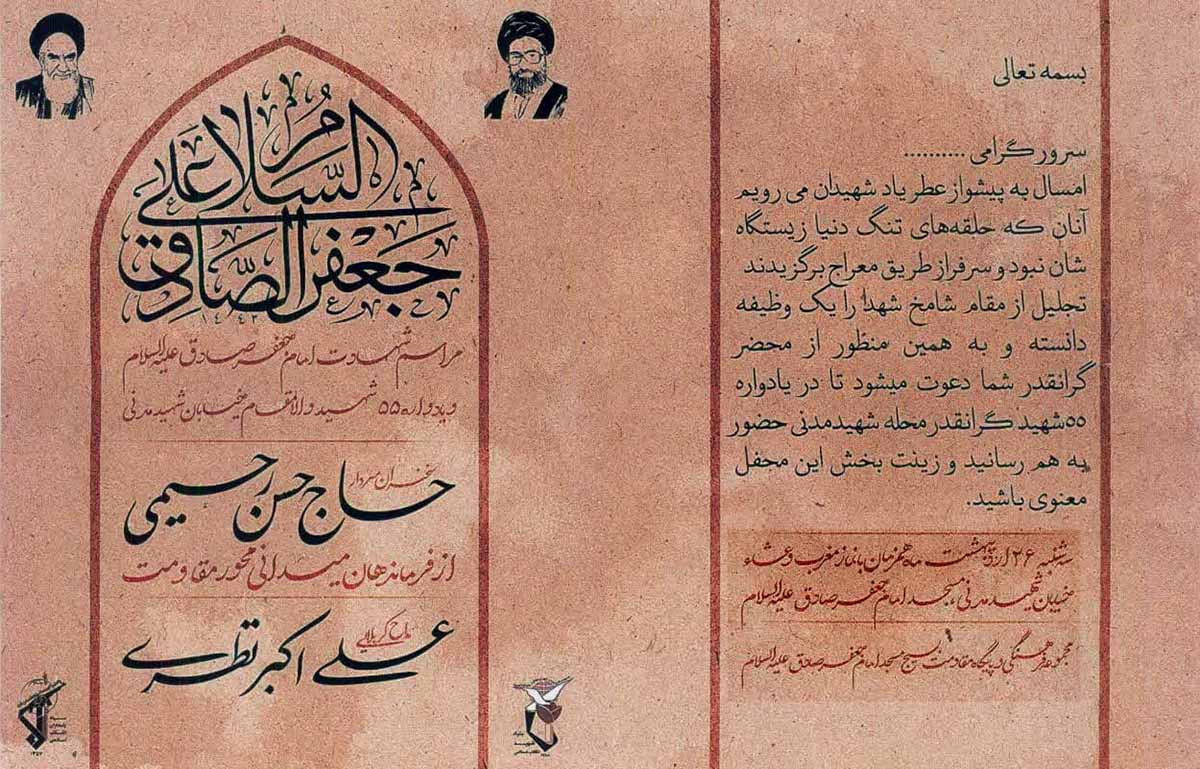 بسمه تعالی
سرور گرامی ..........
امسال به پیشواز عطر یاد شهیدان می رویم
آنان که حلقه‌های تنگ دنیا زیستگاه
شان نبود و سرفراز طریق معراج برگزیدند
تجلیل از مقام شامخ شهدا را یک وظیفه
دانسته و به همین منظور از محضر
گرانقدر شما دعوت میشود تا در یادواره
۵۵شهید گرانقدر محله شهیدمدنی حضور
به هم رسانید و زینت بخش این محفل
معنوی باشید.
سه شنبه ۲۶ اردیبهشت ماه همزمان با نماز مغرب و عشاء
خیابان شهید مدنی، مسجد امام جعفر صادق علیه السلام
مجموعه فرهنگی و پایگاه مقاومت بسیج مسجد امام جعفر صادق علیه السلام
السلام علی
جعفر الصادق
مراسم شهادت امام جعفر صادق علیه السلام
و یادواره ۵۵ شهید والامقام خیابان شهید مدنی
سخنران سردار
حاج حسن رحیمی
از فرماندهان میدانی محور مقاومت
مداح کربلایی
علی اکبر نظری